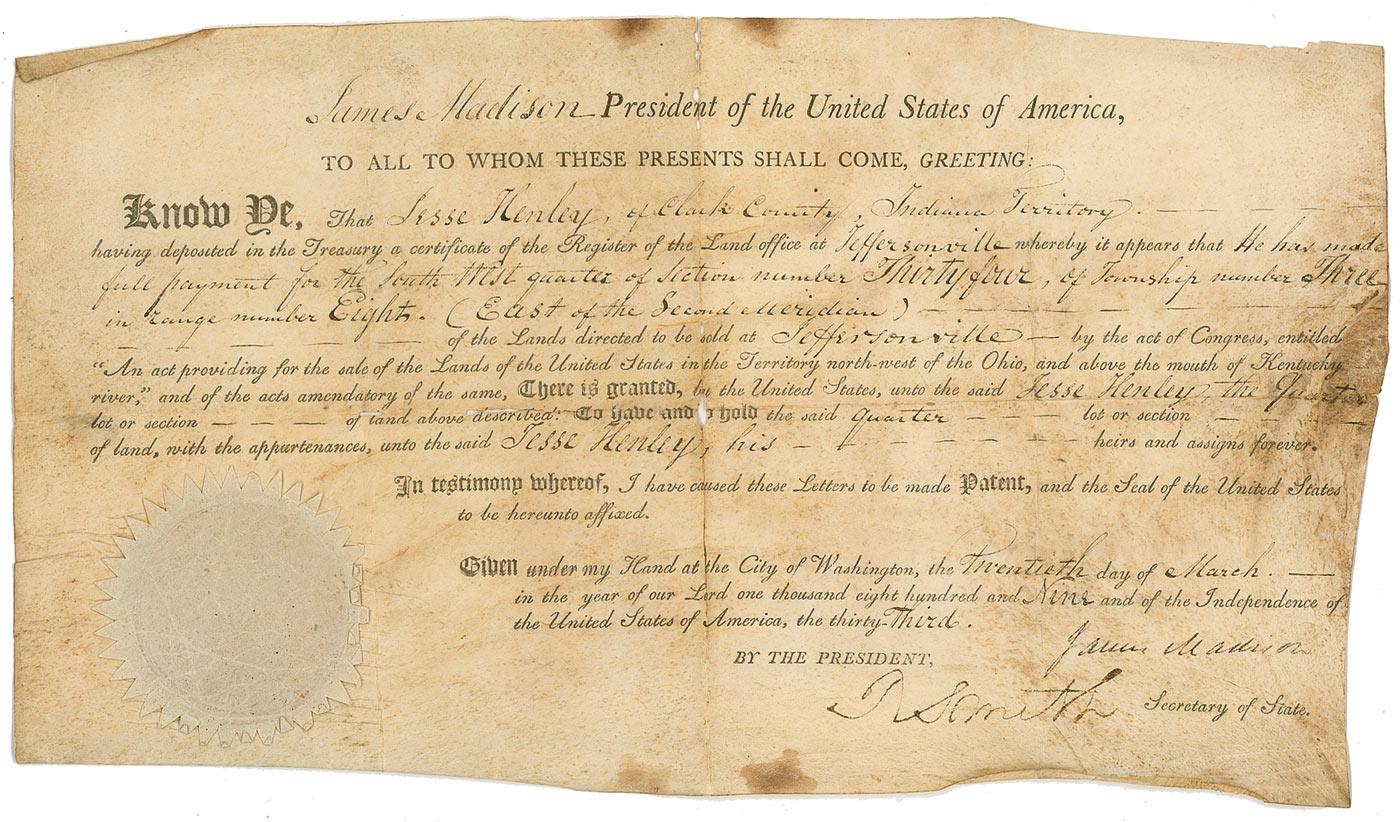 James Madison President of the United States of America,
TO ALL TO WHOM THESE PRESENTS SHALL COME, GREETING:
Know Ye, That Jesse Henley, of Clark County, Indiana Territory. — — — —
having deposited in the Treasury a certificate of the Register of the Land office at Jeffersonville whereby it appears that He has made
full payment for the South West quarter of Section number Thirty four, of Township number Three
in range number Eight. (East of the Second Meridian) — — — — — — —
— — — — — of the Lands directed to be sold at Jeffersonville — by the act of Congress, entitled
“An act providing for the sale of the Lands of the United States in the Territory north-west of the Ohio, and above the mouth of Kentucky
river,” and of the acts amendatory of the same, There is granted, by the United States, unto the said Jesse Henley, the Quarter
lot or section — — — — of land above described: To have and to hold the said quarter — — — lot or section — — —
of land, with the appurtenances, unto the said Jesse Henley, his — — — — — — — heirs and assigns forever.
In testimony whereof, I have caused these Letters to be made Patent, and the Seal of the United States
to be hereunto affixed.
Given under my Hand at the City of Washington, the Twentieth day of March. —
in the year of our Lord one thousand eight hundred and Nine and of the Independence of
the United States of America, the thirty-Third.
James Madison
BY THE PRESIDENT,
R Smith Secretary of State.